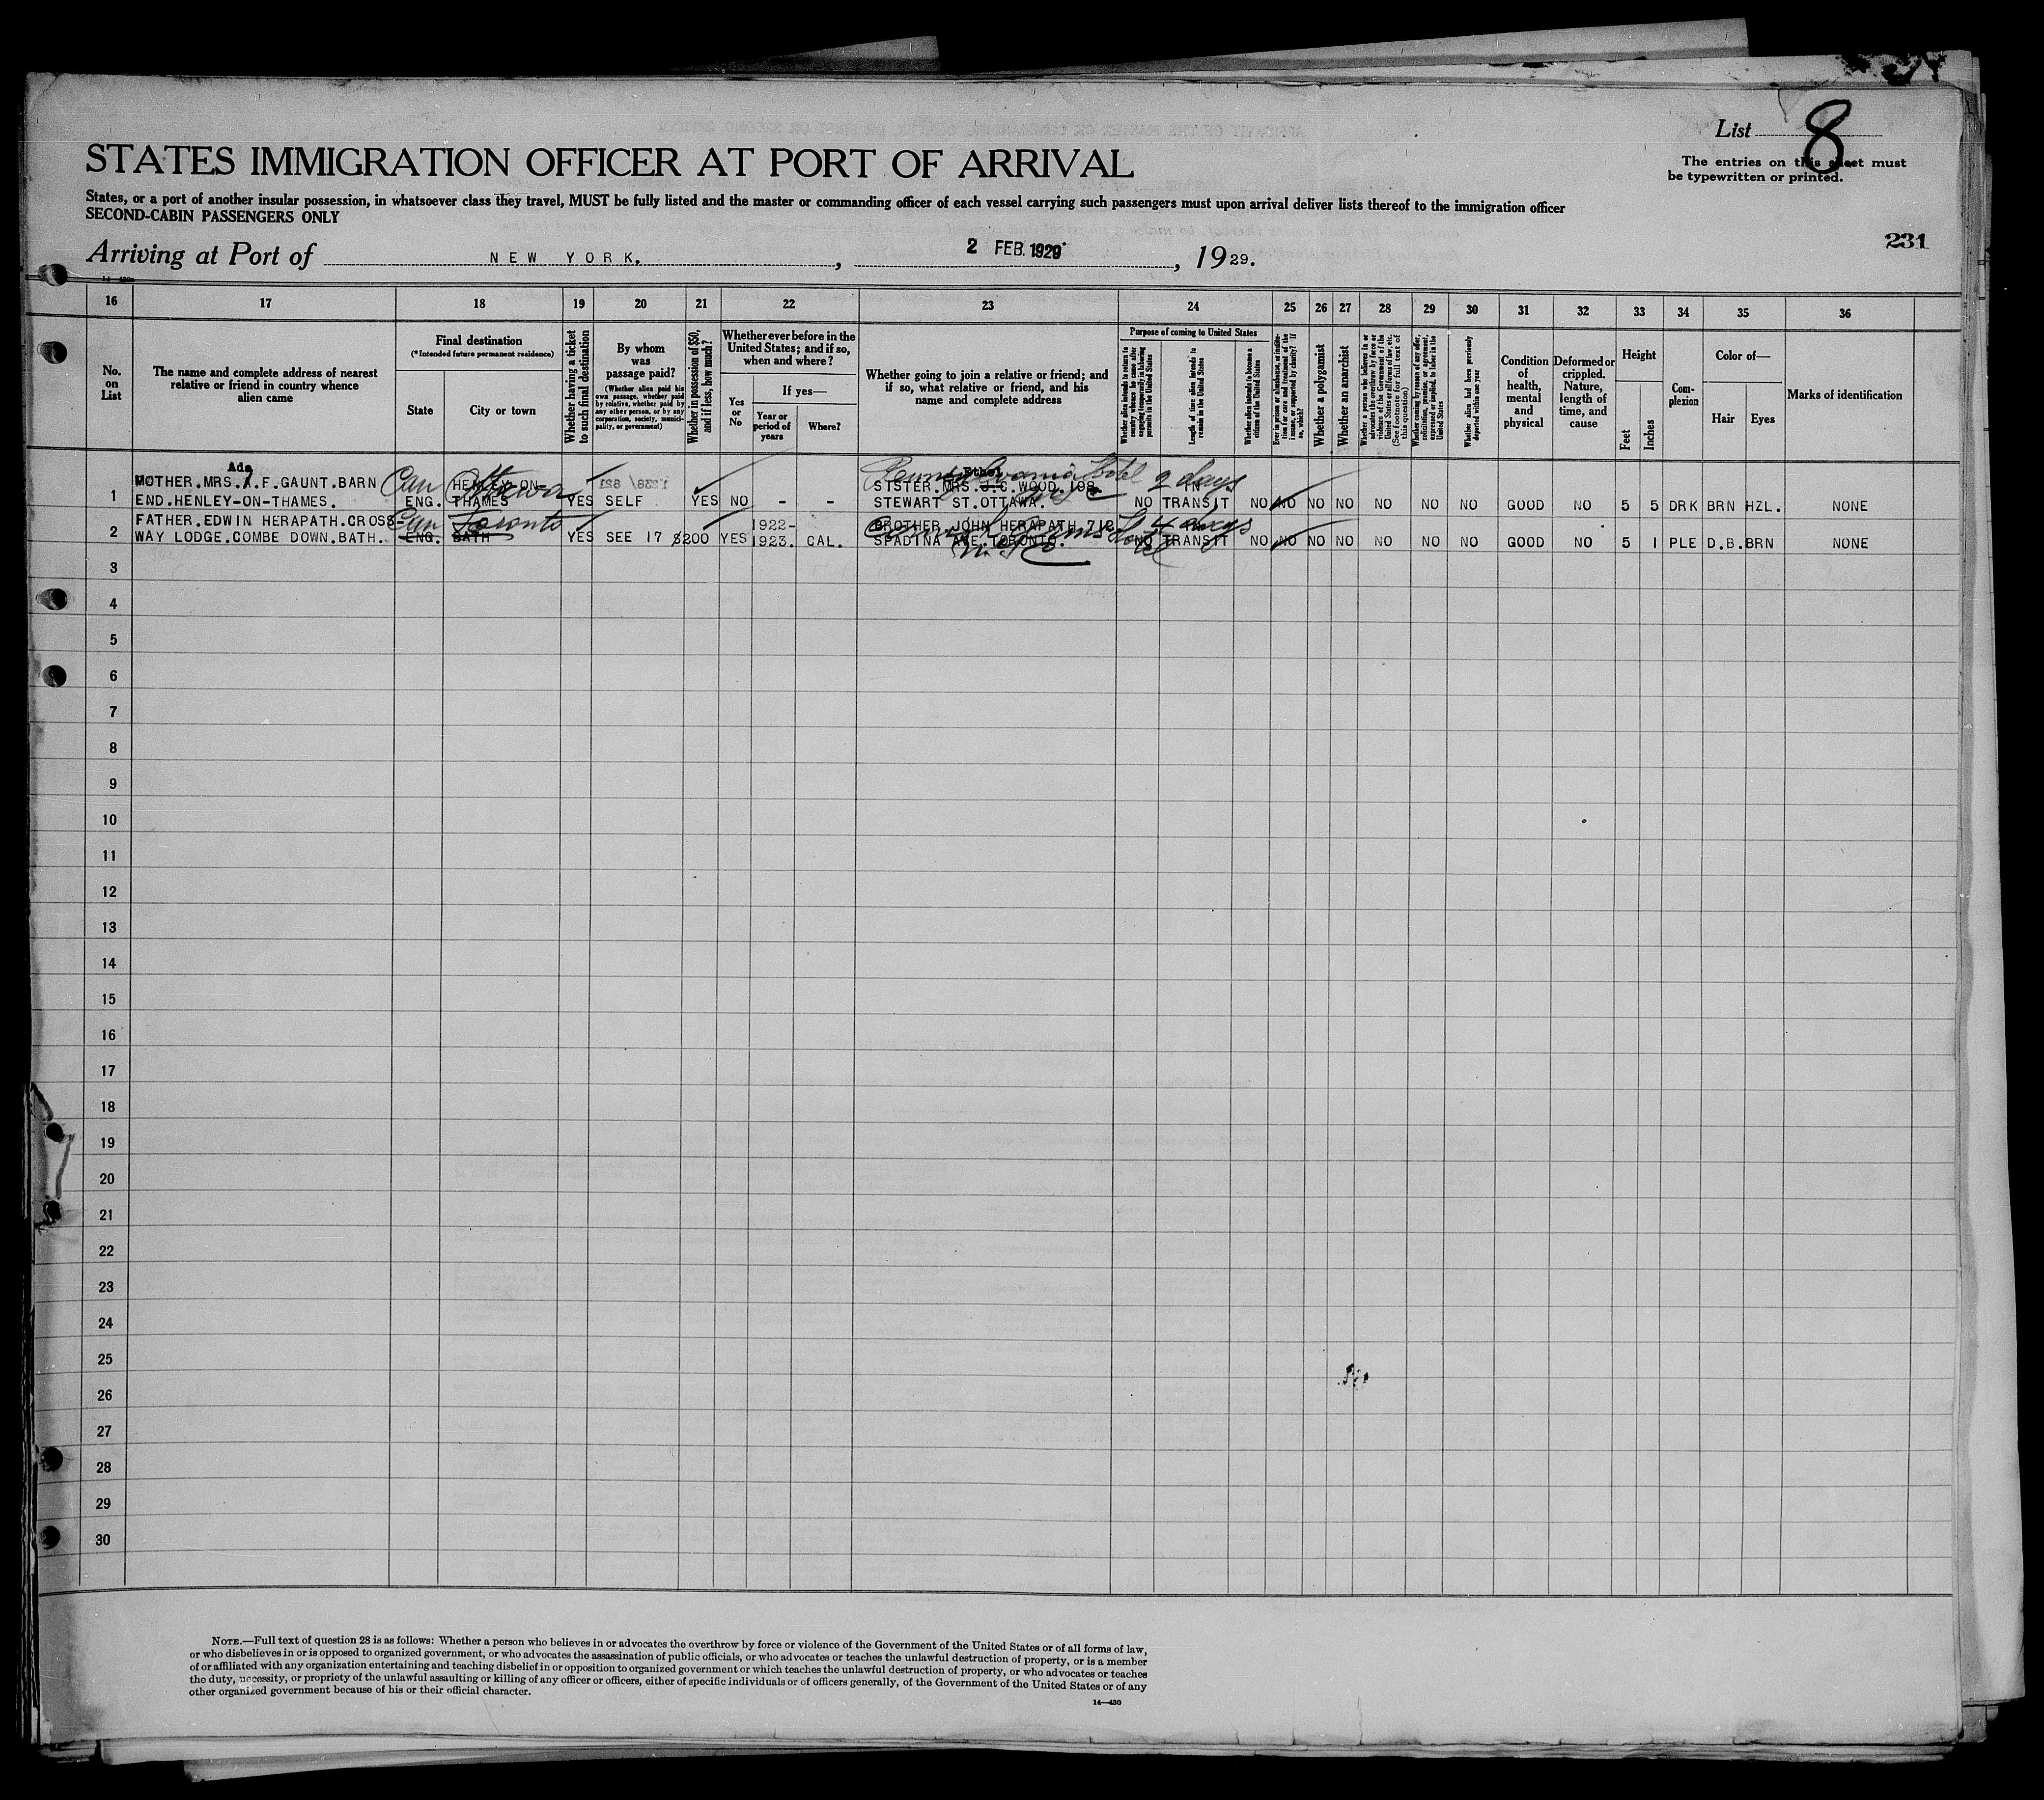 List 8
The entries on this sheet must
be typewritten or printed.
STATES IMMIGRATION OFFICER AT PORT OF ARRIVAL
States, or a port of another insular possession, in whatsoever class they travel, MUST be fully listed and the master or commanding officer of each vessel carrying such passengers must upon arrival deliver lists thereof to the immigration officer
SECOND-CABIN PASSENGERS ONLY
231
Arriving at Port of NEW YORK. , 2 FEB. 1929 , 1929.
16 17 18 19 20 21 22 23 24 25 26 27 28 29 30 31 32 33 34 35 36
No. on List
The name and complete address of nearest relative or friend in country whence alien came
Final destination
(*Intended future permanent residence)
State
City or town
Whether having a ticket to such final destination
By whom was passage paid?
(Whether alien paid his own passage, whether paid by relative, whether paid by any other person, or by any corporation, society, municipality, or government)
Whether in possession of $50, and if less, how much?
Whether ever before in the United States; and if so, when and where?
Yes or No
If yes—
Year or period of years
Where?
Whether going to join a relative or friend; and if so, what relative or friend, and his name and complete address
Purpose of coming to United States
Whether alien intends to return to country whence he came after engaging temporarily in laboring pursuits in the United States
Length of time alien intends to remain in the United States
Whether alien intends to become a citizen of the United States
Ever in prison or almshouse, or institution for care and treatment of the insane, or supported by charity? If so, which?
Whether a polygamist
Whether an anarchist
Whether a person who believes in or advocates the overthrow by force or violence of the Government of the United States or all forms of law, etc. (See footnote for full text of this question)
Whether coming by reason of any offer, solicitation, promise, or agreement, expressed or implied, to labor in the United States
Whether alien had been previously deported within one year
Condition of health, mental and physical
Deformed or crippled. Nature, length of time, and cause
Height
Feet
Inches
Complexion
Color of—
Hair
Eyes
Marks of identification
Ada Can Ottawa Pennsylvania Hotel 2 days
Ethel
MOTHER.MRS. F.GAUNT.BARN HENLEY-ON- SISTER.MRS. J.C.WOOD.198. IN
1 END.HENLEY-ON-THAMES. ENG. THAMES YES SELF YES NO - - STEWART ST.OTTAWA. NO TRANSIT NO NO NO NO NO NO NO GOOD NO 5 5 DRK BRN HZL. NONE
FATHER.EDWIN HERAPATH.CROSS- Can Toronto 1922- BROTHER JOHN HERAPATH 712 4 days
2 WAY LODGE.COMBE DOWN.BATH. ENG. BATH YES SEE 17 $200 YES 1923. CAL. SPADINA AVE.TORONTO. NO TRANSIT NO NO NO NO NO NO NO GOOD NO 5 1 PLE D.B. BRN NONE
3
4
5
6
7
8
9
10
11
12
13
14
15
16
17
18
19
20
21
22
23
24
25
26
27
28
29
30
NOTE.—Full text of question 28 is as follows: Whether a person who believes in or advocates the overthrow by force or violence of the Government of the United States or of all forms of law,
or who disbelieves in or is opposed to organized government, or who advocates the assassination of public officials, or who advocates or teaches the unlawful destruction of property, or is a member
of or affiliated with any organization entertaining and teaching disbelief in or opposition to organized government or which teaches the unlawful destruction of property, or who advocates or teaches
the duty, necessity, or propriety of the unlawful assaulting or killing of any officer or officers, either of specific individuals or of officers generally, of the Government of the United States or of any
other organized government because of his or their official character.
14—430